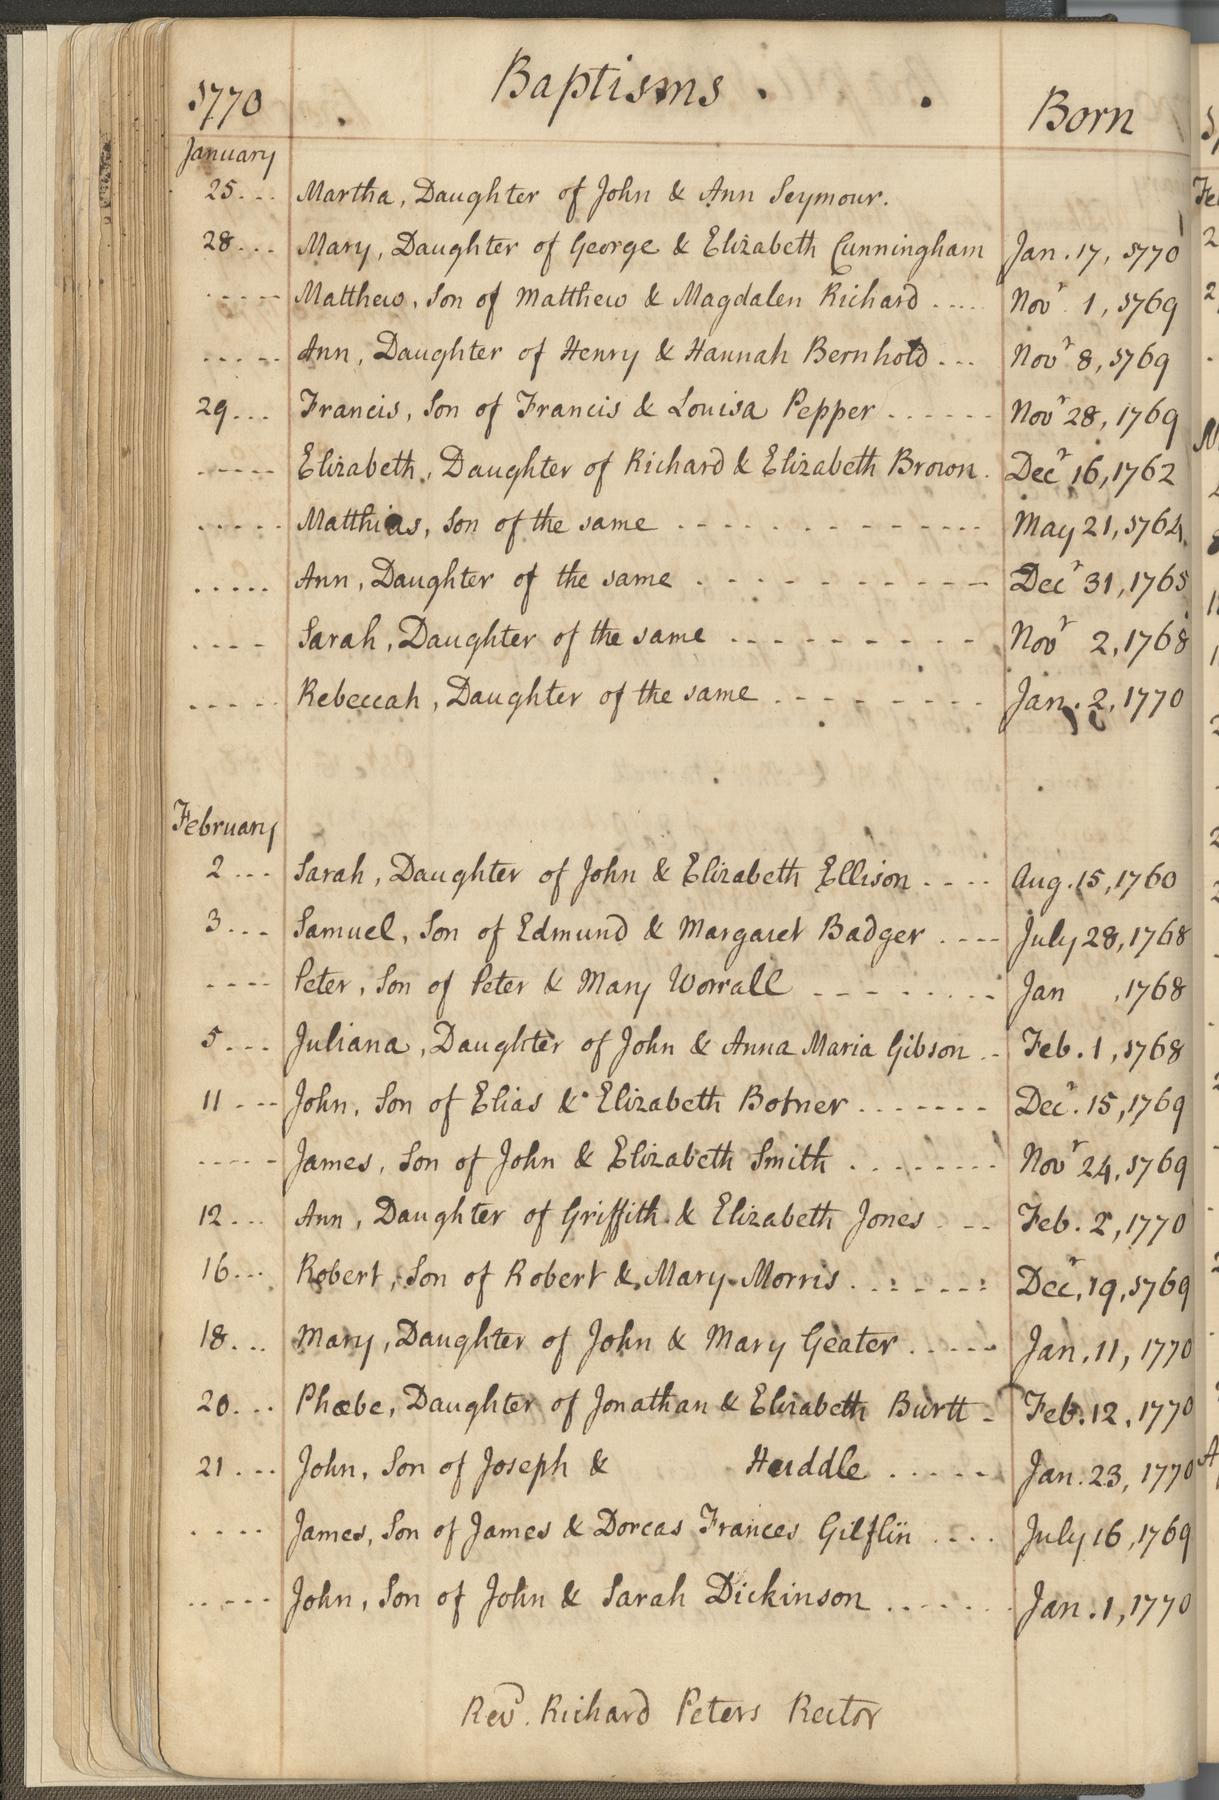 1770 Baptisms . Born
January
25... Martha, Daughter of John & Ann Seymour.
28... Mary, Daughter of George & Elizabeth Cunningham Jan. 17, 1770
..... Matthew, Son of Matthew & Magdalen Richard .... Novr. 1, 1769
..... Ann, Daughter of Henry & Hannah Bernhold ... Novr 8, 1769
29... Francis, Son of Francis & Louisa Pepper ...... Novr 28, 1769
..... Elizabeth, Daughter of Richard & Elizabeth Brown. Decr 16, 1762
..... Matthias, Son of the same ............. May 21, 1764
..... Ann, Daughter of the same ........... Decr 31, 1765
.... Sarah, Daughter of the same ......... Novr 2, 1768
..... Rebeccah, Daughter of the same ........ Jan. 2, 1770
February
2... Sarah, Daughter of John & Elizabeth Ellison .... Aug. 15, 1760
3... Samuel, Son of Edmund & Margaret Badger .... July 28, 1768
.... Peter, Son of Peter & Mary Worrall ........ Jan , 1768
5... Juliana, Daughter of John & Anna Maria Gibson .. Feb. 1, 1768
11... John, Son of Elias & Elizabeth Botner ....... Decr. 15, 1769
..... James, Son of John & Elizabeth Smith ........ Novr 24, 1769
12... Ann, Daughter of Griffith & Elizabeth Jones ... Feb. 2, 1770
16... Robert, Son of Robert & Mary Morris ....... Decr, 19, 1769
18... Mary, Daughter of John & Mary Geater ..... Jan. 11, 1770
20... Phœbe, Daughter of Jonathan & Elizabeth Burtt . Feb. 12, 1770
21... John, Son of Joseph & Huddle ..... Jan. 23, 1770
.... James, Son of James & Dorcas Frances Gilflin .... July 16, 1769
..... John, Son of John & Sarah Dickinson ...... Jan. 1, 1770
Revd. Richard Peters Rector